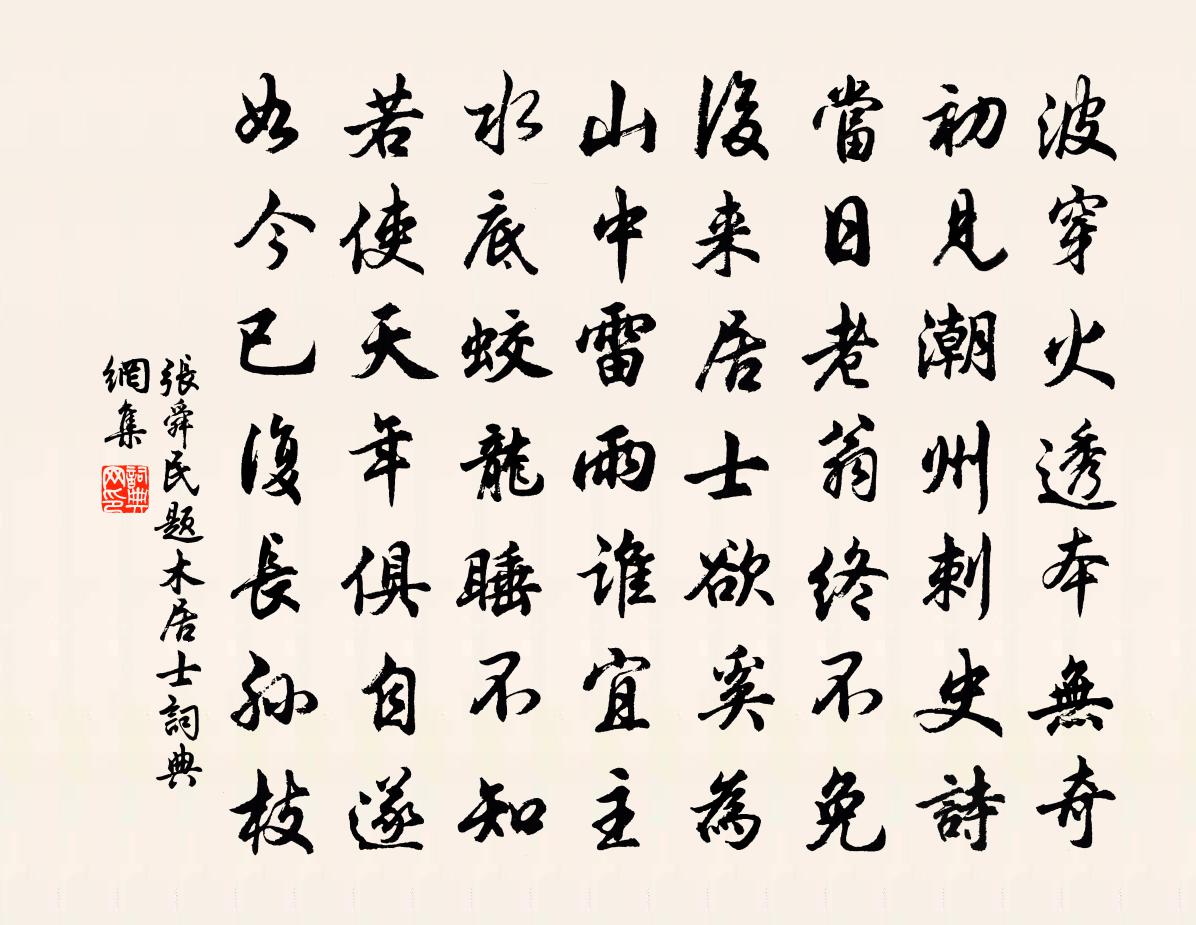 波穿火透本無奇
初見潮州刺史詩
當日老翁終不免
後来居士欲奚為
山中雷雨誰宜主
水底蛟龍睡不知
若使天年俱自遂
如今已復長孫枝
張舜民題木居士詞典
網集
詞典
网印